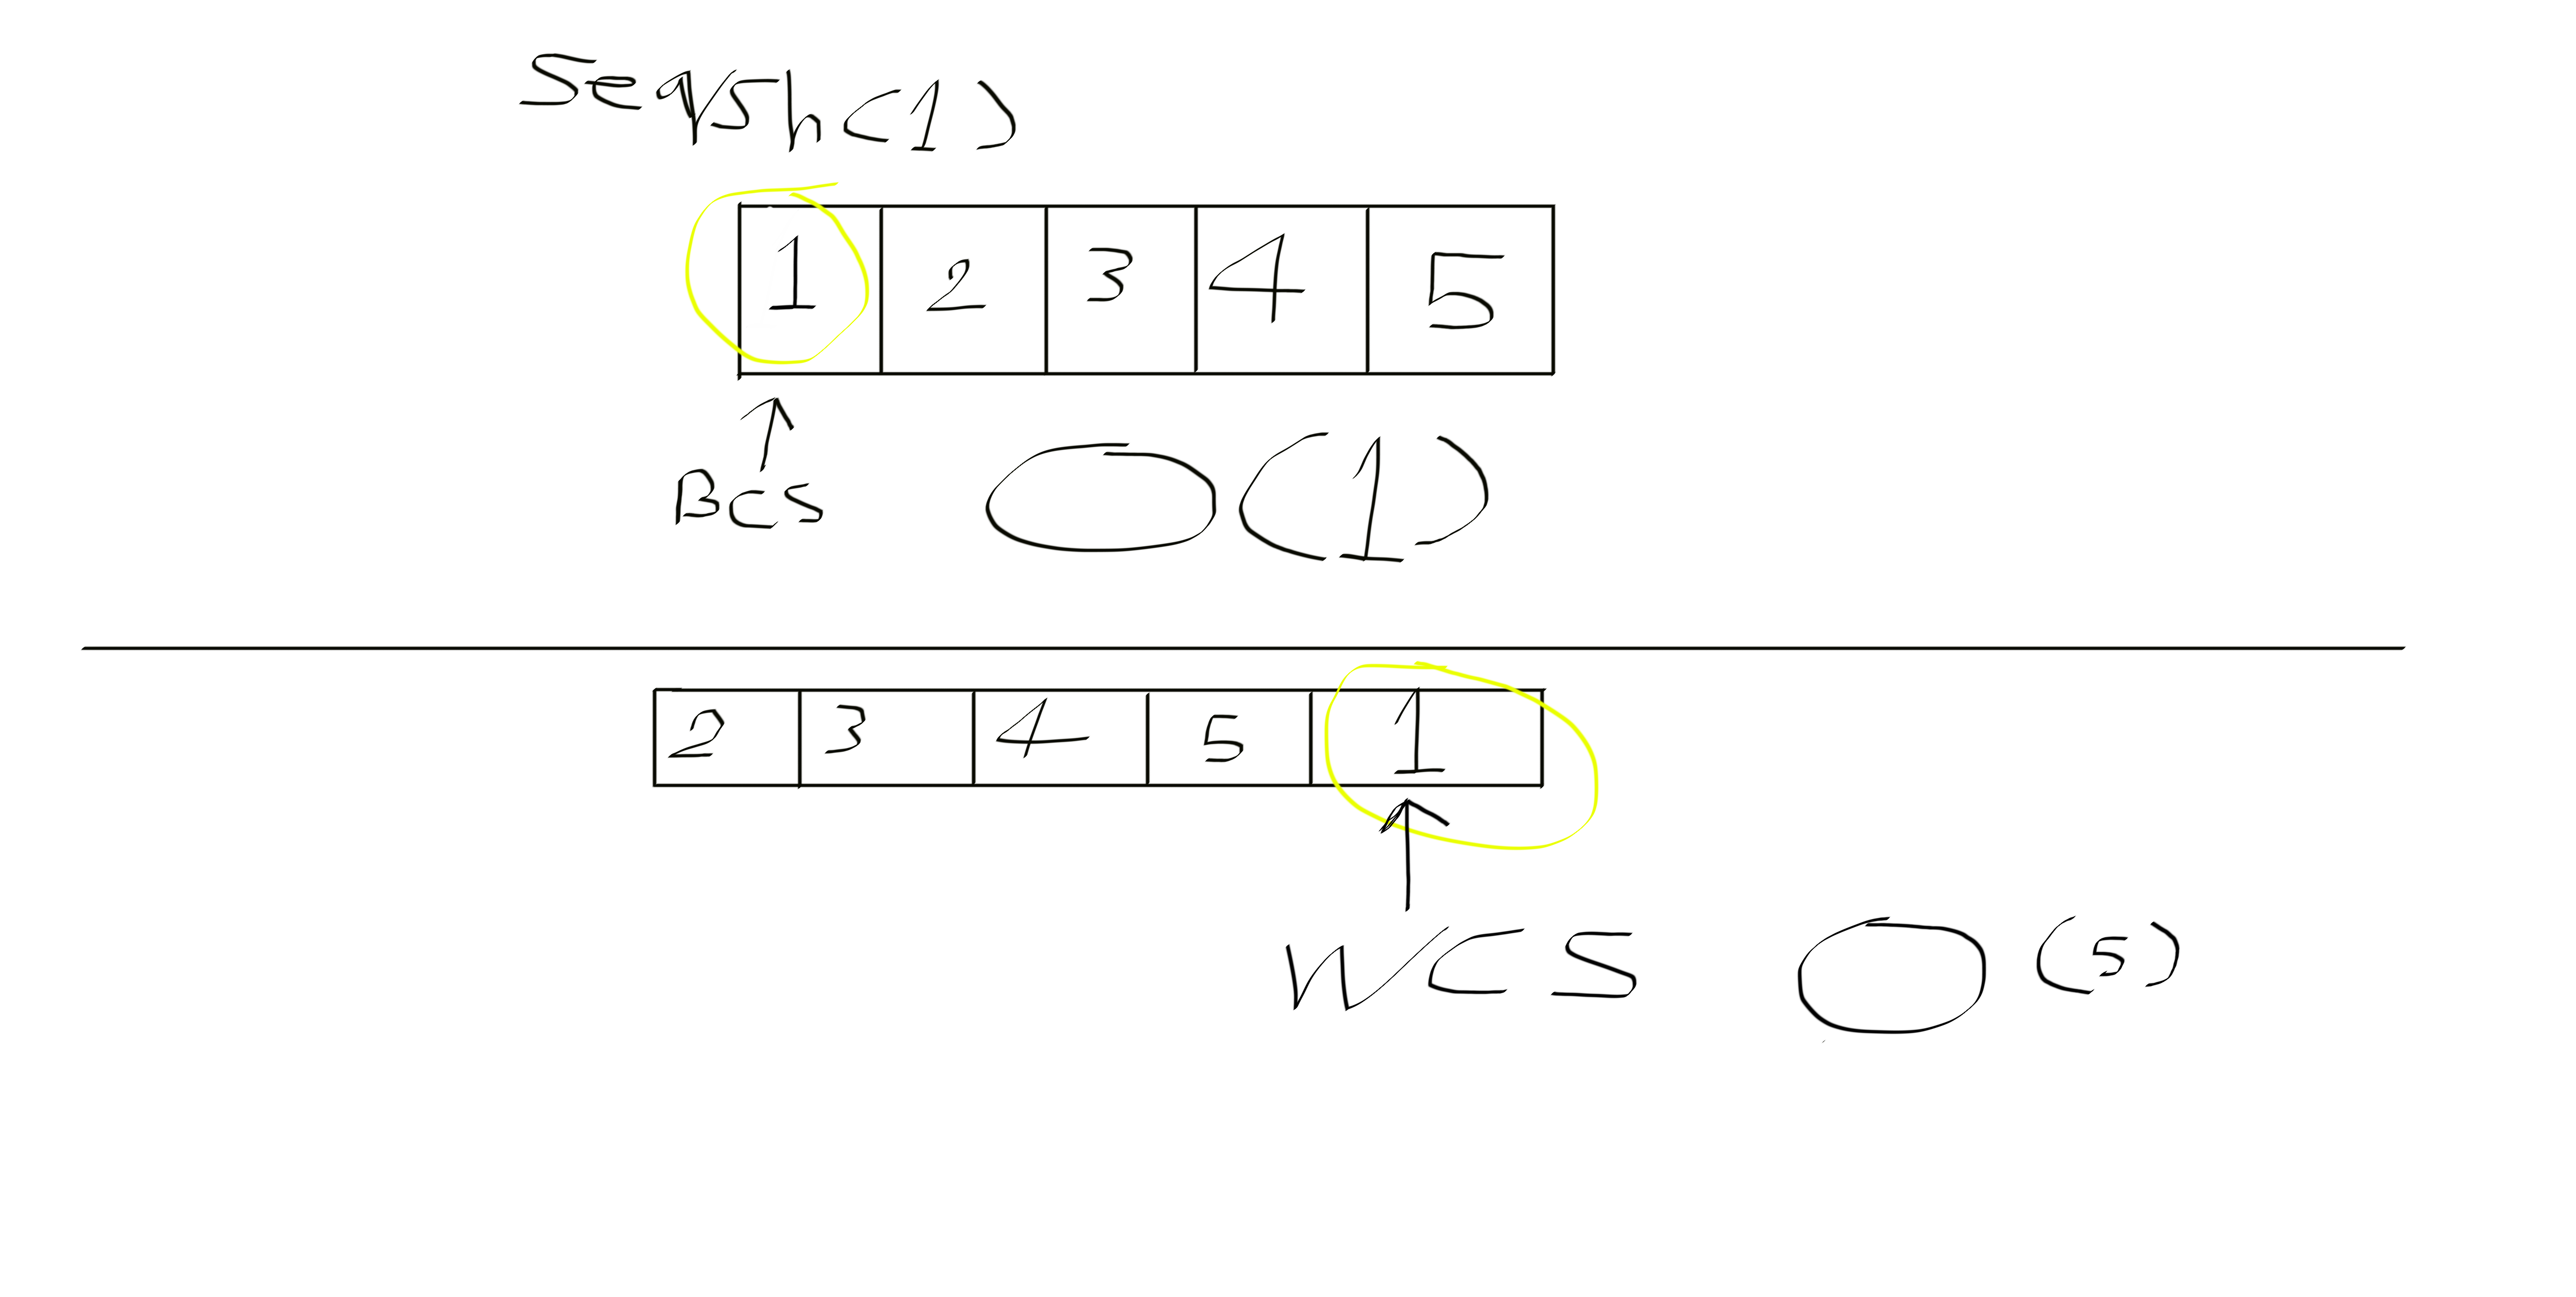 Seqsh(1)
1 2 3 4 5
BCS O(1)
2 3 4 5 1
WCS O(5)